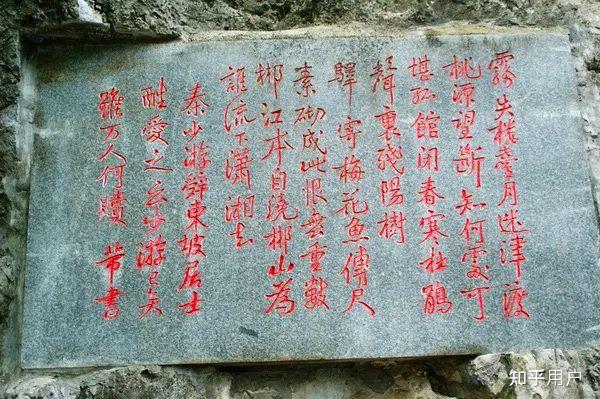 霧失樓臺月迷津渡
桃源望斷知何處可
堪孤館閉春寒杜鵑
聲裏殘陽樹
驛寄梅花魚傳尺
素砌成此恨無重數
郴江本自繞郴山為
誰流下瀟湘去
秦少游辭東坡居士
酷愛之云少游已矣
雖万人何贖 芾書
知乎用户